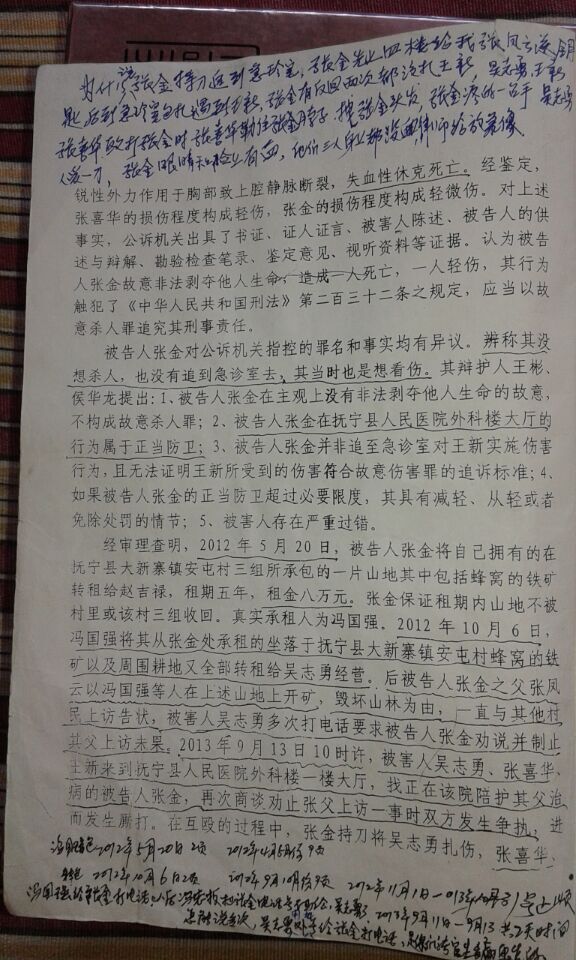 为什么说张金持刀追到急诊室，张金先上四楼给我张凤云送钥
匙，后到急诊室包扎遇到王新，张金有反回两次都没扎王新，吴志勇，王新
张喜华殴打张金时
张金眼睛和脸上有血，他们三人
锐性外力作用于胸部致上腔静脉断裂，失血性休克死亡。经鉴定，
张喜华的损伤程度构成轻伤，张金的损伤程度构成轻微伤。对上述
事实，公诉机关出具了书证、证人证言、被害人陈述、被告人的供
述与辩解、勘验检查笔录、鉴定意见、视听资料等证据。认为被告
人张金故意非法剥夺他人生命，造成一人死亡，一人轻伤，其行为
触犯了《中华人民共和国刑法》第二百三十二条之规定，应当以故
意杀人罪追究其刑事责任。
被告人张金对公诉机关指控的罪名和事实均有异议。辨称其没
想杀人，也没有追到急诊室去，其当时也是想看伤。其辩护人王彬、
侯华龙提出：1、被告人张金在主观上没有非法剥夺他人生命的故意，
不构成故意杀人罪；2、被告人张金在抚宁县人民医院外科楼大厅的
行为属于正当防卫；3、被告人张金并非追至急诊室对王新实施伤害
行为，且无法证明王新所受到的伤害符合故意伤害罪的追诉标准；4、
如果被告人张金的正当防卫超过必要限度，其具有减轻、从轻或者
免除处罚的情节；5、被害人存在严重过错。
经审理查明，2012年5月20日，被告人张金将自己拥有的在
抚宁县大新寨镇安屯村三组所承包的一片山地其中包括蜂窝的铁矿
转租给赵吉禄，租期五年，租金八万元。张金保证租期内山地不被
村里或该村三组收回。真实承租人为冯国强。2012年10月6日，
冯国强将其从张金处承租的坐落于抚宁县大新寨镇安屯村蜂窝的铁
矿以及周围耕地又全部转租给吴志勇经营。后被告人张金之父张凤
云以冯国强等人在上述山地上开矿，毁坏山林为由，一直与其他村
民上访告状，被害人吴志勇多次打电话要求被告人张金劝说并制止
其父上访未果。2013年9月13日10时许，被害人吴志勇、张喜华、
王新来到抚宁县人民医院外科楼一楼大厅，找正在该院陪护其父治
病的被告人张金，再次商谈劝止张父上访一事时双方发生争执，进
而发生厮打。在互殴的过程中，张金持刀将吴志勇扎伤，张喜华、
2012年5月20日2项 2012年4月5日
2012年10月6日2项
冯国强给张金打电话 2013年9月11日-9月13 共2天时间
吴志勇 给张金打电话